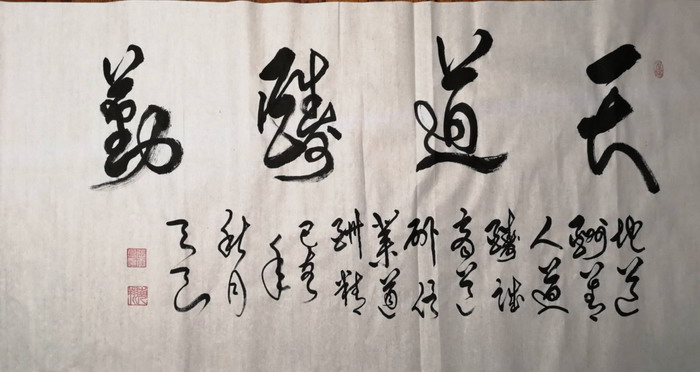 天道醻勤
地道
酬善
人道
醻诚
商道
酬信
業道
酬精
己亥
年
秋月